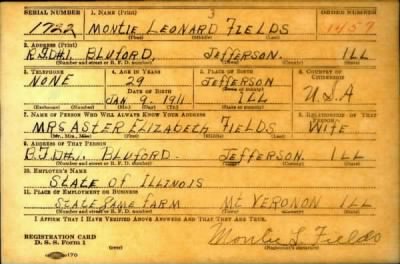 SERIAL NUMBER 1. NAME (Print) ORDER NUMBER
1722 MONTIE LEONARD FIELDS 1457
(First) (Middle) (Last)
2. ADDRESS (Print)
R.F.D#1 BLUFORD, JEFFERSON. ILL
(Number and street or R. F. D. number) (Town) (County) (State)
3. TELEPHONE 4. AGE IN YEARS 5. PLACE OF BIRTH 6. COUNTRY OF CITIZENSHIP
NONE 29 JEFFERSON
DATE OF BIRTH
JAN 9. 1911 ILL U.S.A
(Exchange) (Number) (Mo.) (Day) (Yr.) (State or country)
7. NAME OF PERSON WHO WILL ALWAYS KNOW YOUR ADDRESS 8. RELATIONSHIP OF THAT PERSON
MRS ASTER ELIZABETH FIELDS WIFE
(Mr., Mrs., Miss) (First) (Middle) (Last)
9. ADDRESS OF THAT PERSON
R.F.D#1. BLUFORD. JEFFERSON. ILL
(Number and street or R. F. D. number) (Town) (County) (State)
10. EMPLOYER'S NAME
STATE OF ILLINOIS
11. PLACE OF EMPLOYMENT OR BUSINESS
STATE GAME FARM MT VERONON ILL
(Number and street or R. F. D. number) (Town) (County) (State)
I AFFIRM THAT I HAVE VERIFIED ABOVE ANSWERS AND THAT THEY ARE TRUE.
REGISTRATION CARD
D. S. S. Form 1
Montie L Fields
(Registrant's signature)